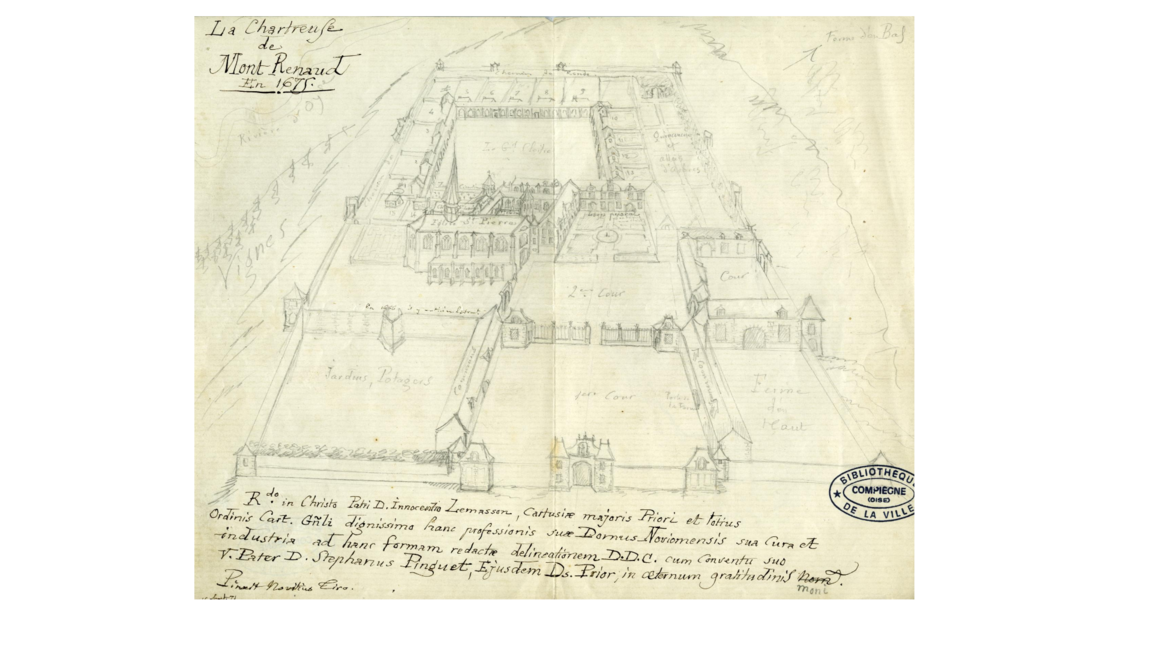 La Chartreuse
de
Mont Renaud
En 1675.
Ferme du Bas
Le Gd Cloître
Eglise St Pierre
Vignes
Cour
2me Cour
Jardins, Potagers
1ère Cour
Ferme
du
Haut
BIBLIOTHEQUE
COMPIEGNE
(OISE)
DE LA VILLE
Rdo in Christo Patri D. Innocentio Lemasson, Cartusiæ majoris Priori et totius
Ordinis Cart. Gñli dignissimo hanc professionis suæ Domus Noviomensis sua Cura et
industria ad hanc formam redactæ delineationem D.D.C. cum Conventu suo
V. Pater D. Stephanus Pinguet, Ejusdem Ds. Prior, in æternum gratitudinis
mont
Pinxit Novitius Tiro.